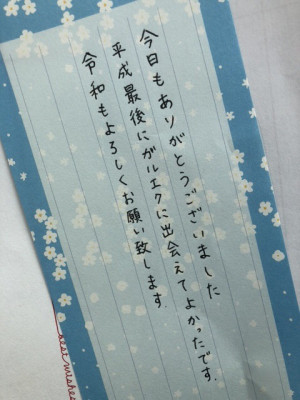 今日もありがとうございました
平成最後にガルエクに出会えてよかったです.
令和もよろしくお願い致します.
best wishes